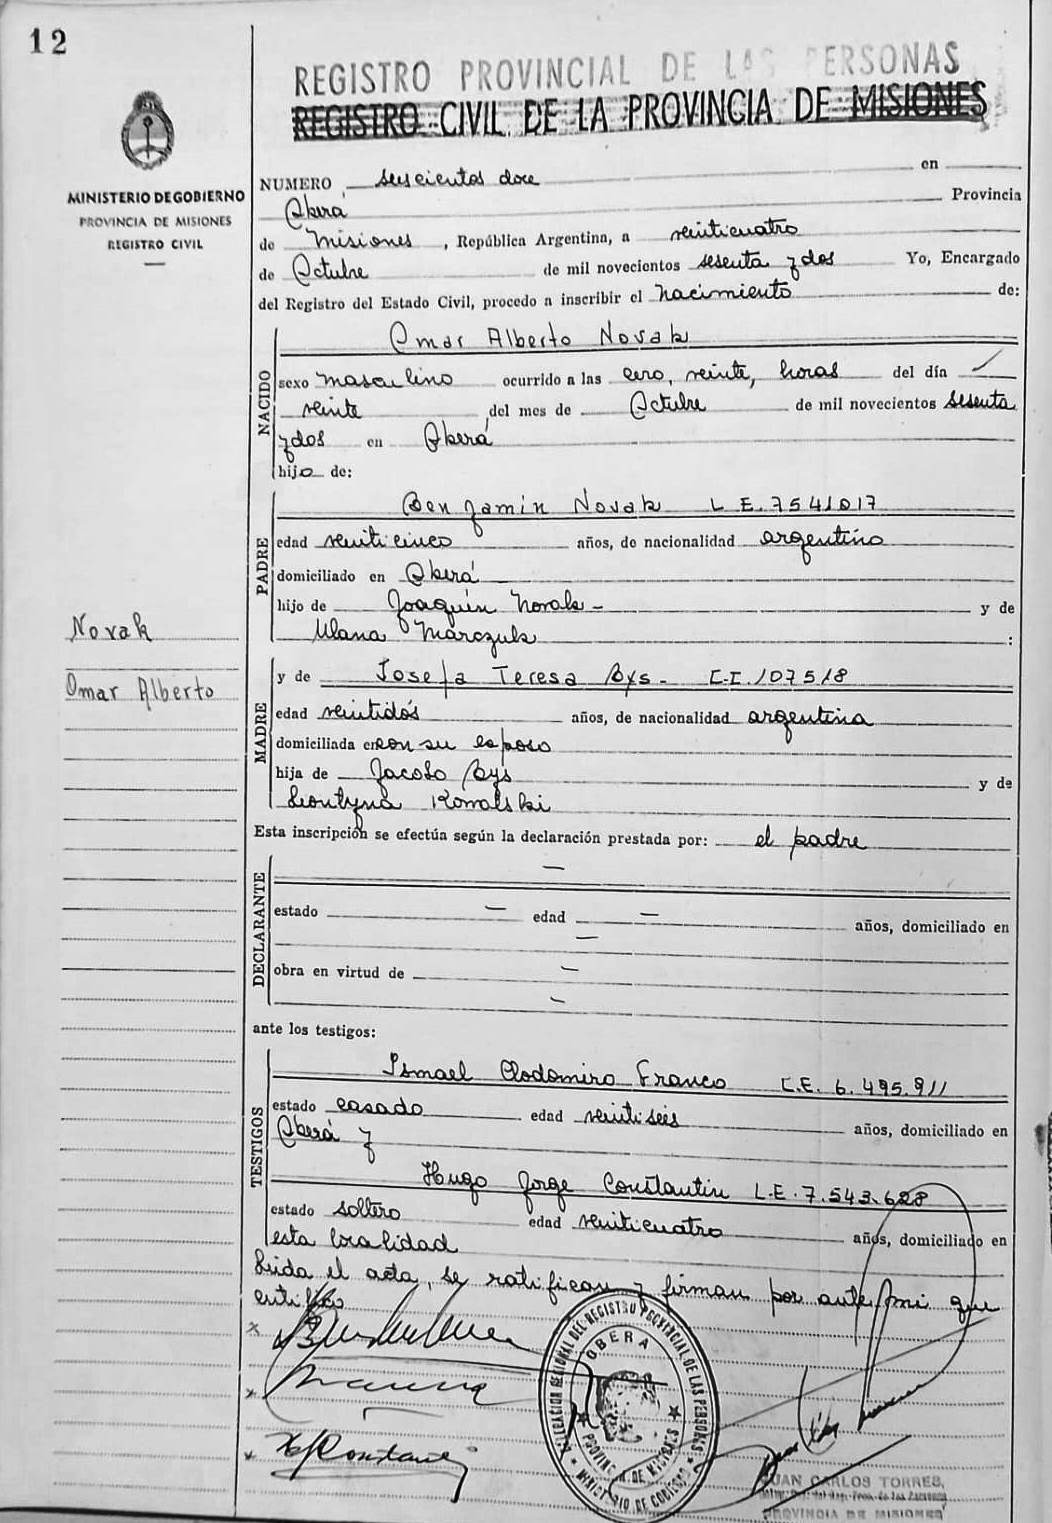 12
REGISTRO PROVINCIAL DE LAS PERSONAS
REGISTRO CIVIL DE LA PROVINCIA DE MISIONES
MINISTERIO DE GOBIERNO
PROVINCIA DE MISIONES
REGISTRO CIVIL
NUMERO seiscientos doce en
Oberá Provincia
de Misiones, República Argentina, a veinticuatro
de Octubre de mil novecientos sesenta y dos Yo, Encargado
del Registro del Estado Civil, procedo a inscribir el nacimiento de:
NACIDO
Omar Alberto Novak
sexo masculino ocurrido a las cero, veinte, horas del día
veinte del mes de Octubre de mil novecientos sesenta
y dos en Oberá
hijo de:
PADRE
Benjamin Novak L.E. 7541017
edad veinticinco años, de nacionalidad argentino
domiciliado en Oberá
hijo de Joaquín Novak - y de
Ulana Marczuk :
Novak
Omar Alberto
MADRE
y de Josefa Teresa Bys - C.I. 107518
edad veintidós años, de nacionalidad argentina
domiciliada en con su esposo
hija de Jacobo Bys y de
Leontyna Kowalski
Esta inscripción se efectúa según la declaración prestada por: el padre
DECLARANTE
—
estado — edad — años, domiciliado en
—
obra en virtud de —
—
ante los testigos:
TESTIGOS
Ismael Clodomiro Franco L.E. 6.495.911
estado casado edad veintiseis años, domiciliado en
Oberá y
Hugo Jorge Constantin L.E. 7.543.628
estado soltero edad veinticuatro años, domiciliado en
esta localidad
Leida el acta, se ratifican y firman por ante mi que
certifico
x
x
x
DELEGACION REGIONAL DEL REGISTRO PROVINCIAL DE LAS PERSONAS
OBERA
PROVINCIA DE MISIONES
MINISTERIO DE GOBIERNO
JUAN CARLOS TORRES
PROVINCIA DE MISIONES